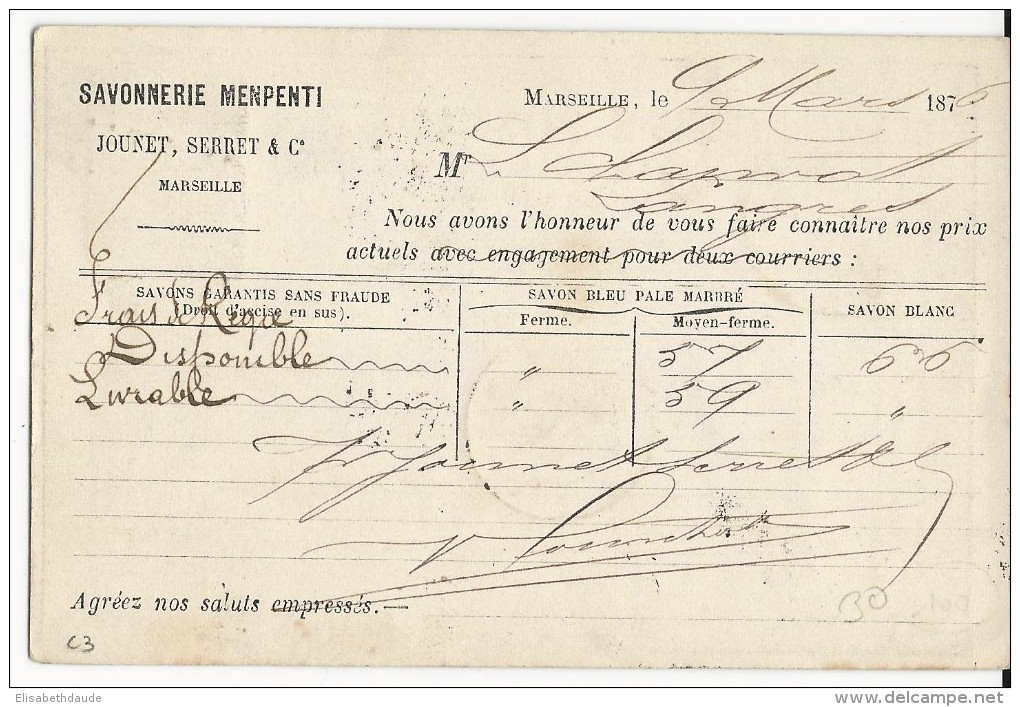 SAVONNERIE MENPENTI
JOUNET, SERRET & Cᵉ
MARSEILLE
MARSEILLE, le 9 Mars 1876
Mʳ
Langres
Nous avons l'honneur de vous faire connaître nos prix
actuels avec engagement pour deux courriers :
SAVONS GARANTIS SANS FRAUDE
(Droit d'accise en sus).
SAVON BLEU PALE MARBRÉ
SAVON BLANC
Ferme.
Moyen-ferme.
Frais de Régie
Disponible " 57
Livrable " 59 "
Jounet Serret & Cⁱᵉ
Agréez nos saluts empressés.—
30
C3
Elisabethdaude
www.delcampe.net